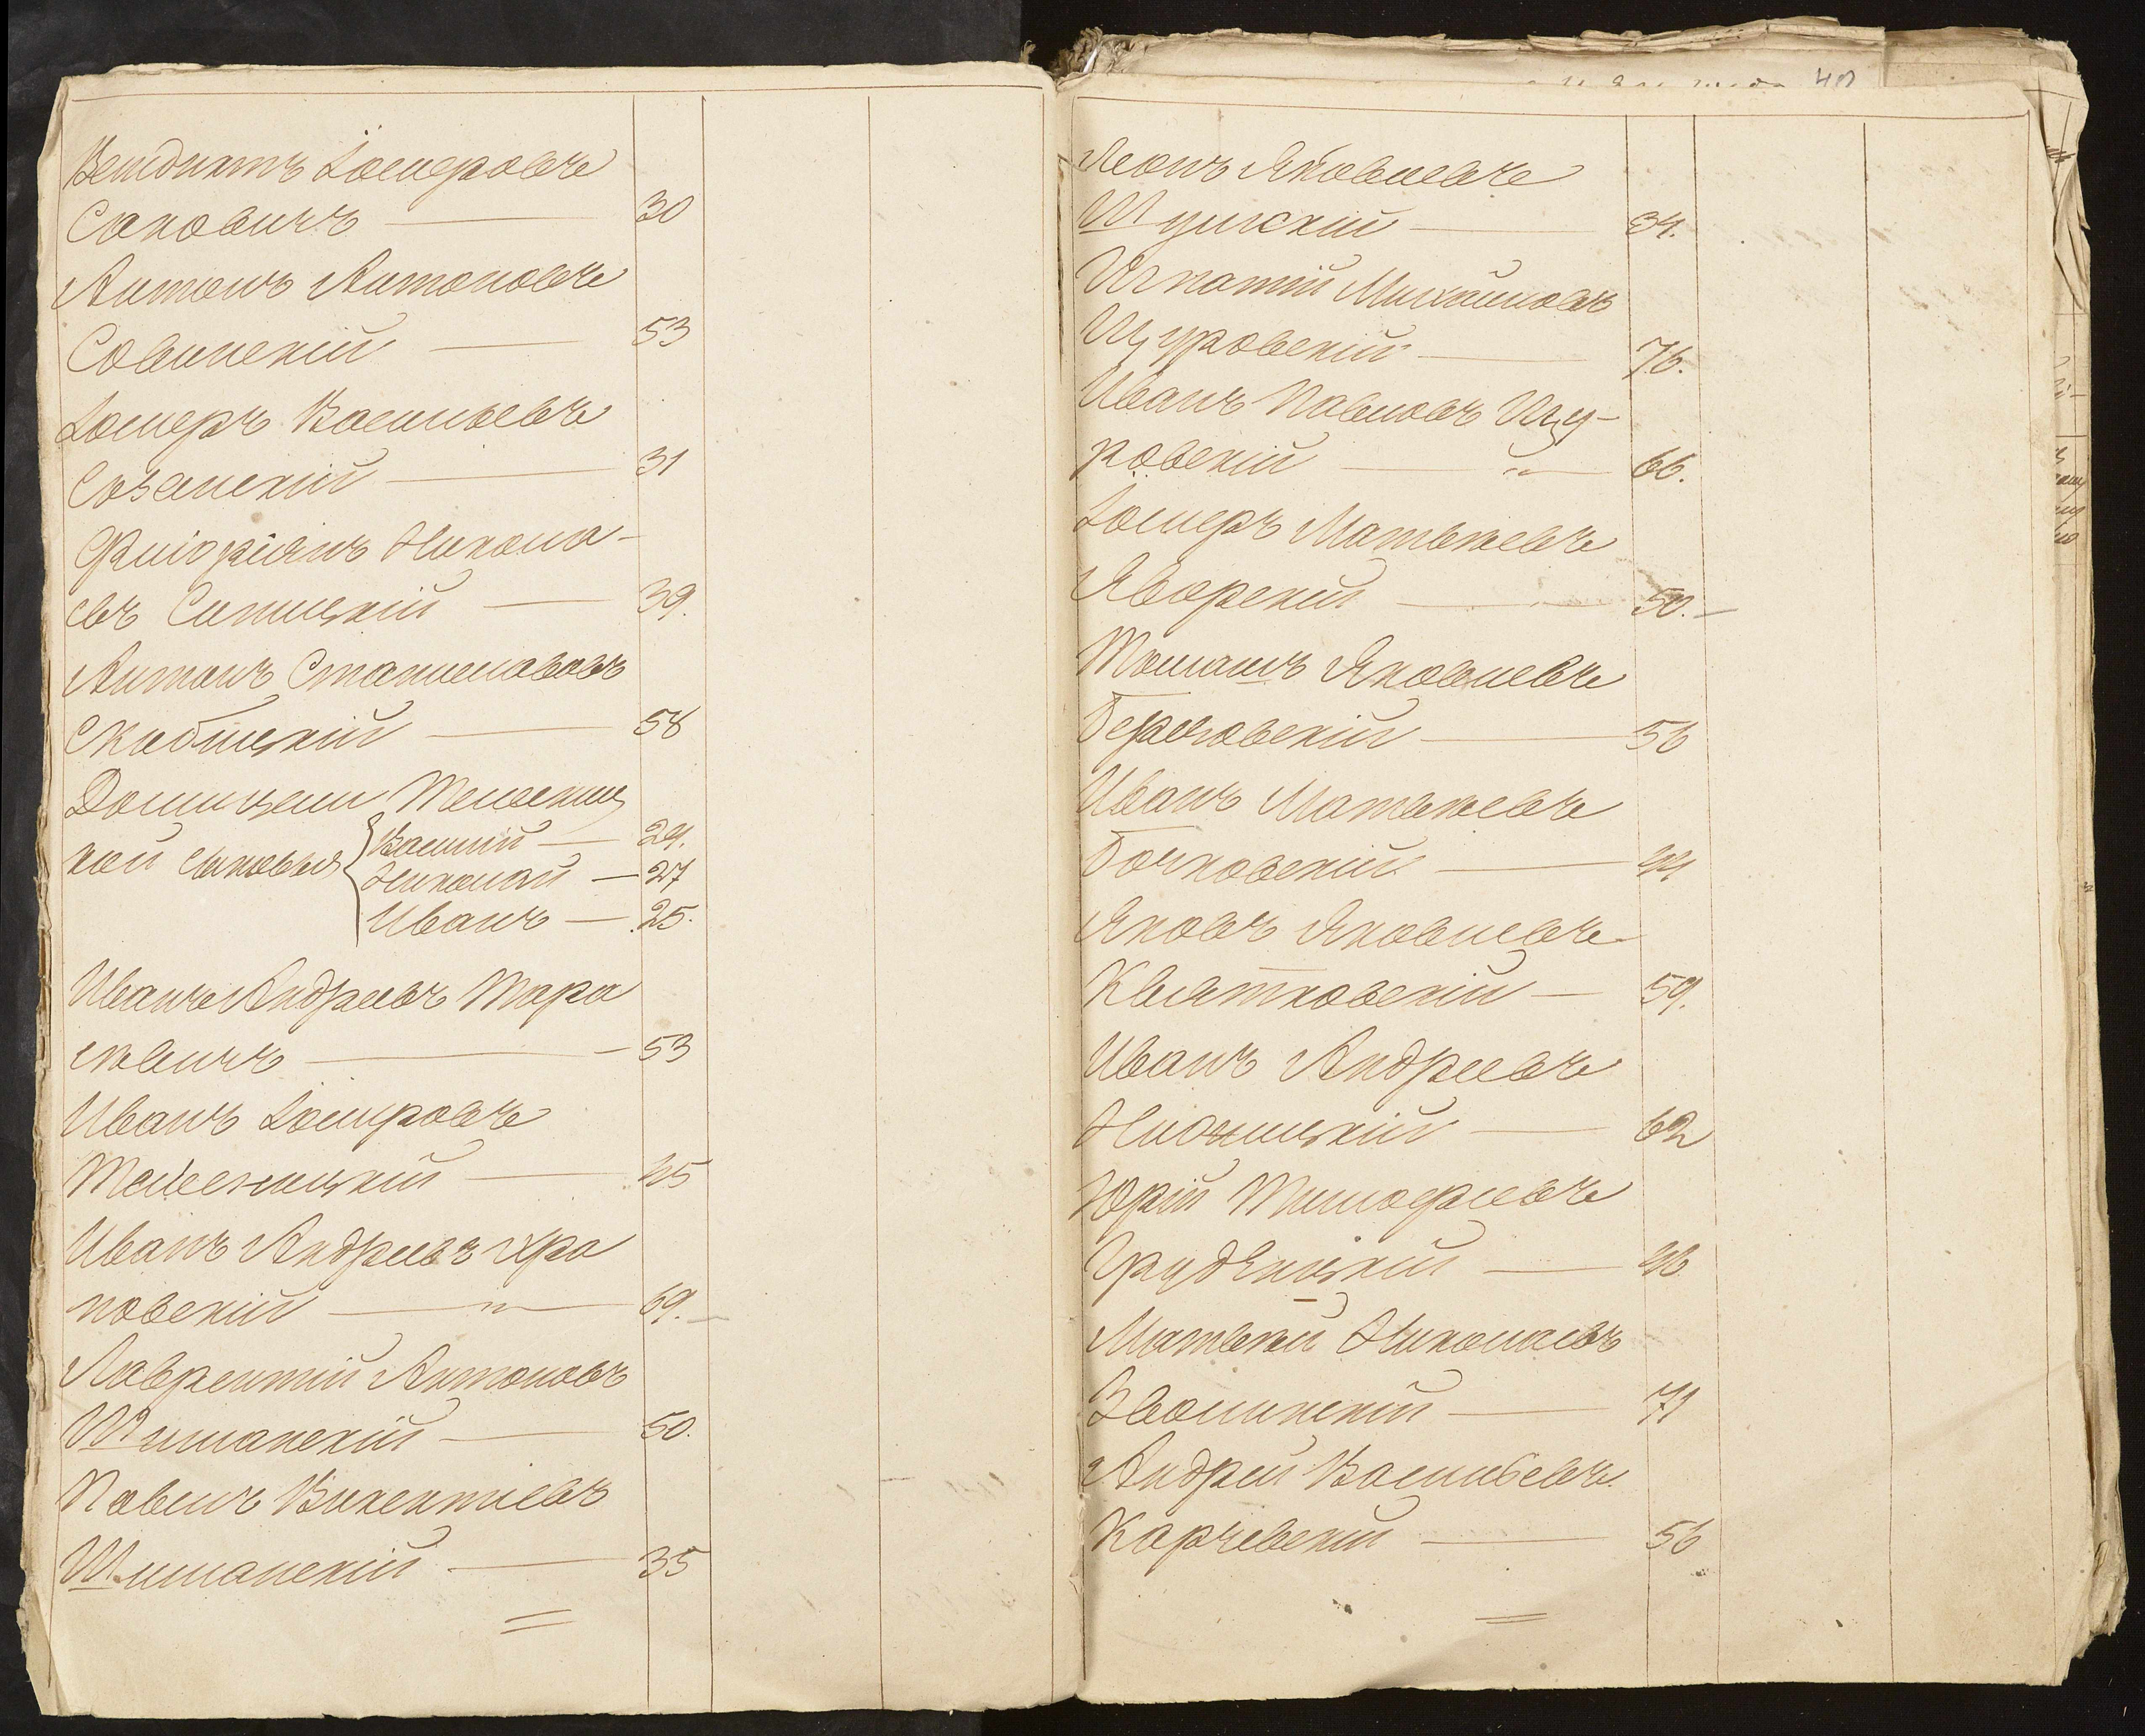 Іосифовъ
Саковичъ — 30
Антонъ Антоновъ
Савинскій — 53
Іосифъ Васильевъ
Созанскій — 31
Флоріянъ Никола-
евъ Ситицкій — 39.
Антонъ Станиславовъ
Скабицкій — 58
Домицели
кой сыновья Василій — 29.
Николай — 27
Иванъ — 25.
Иванъ Андреевъ Тара
севичъ — 53
Иванъ Іосифовъ
45
Иванъ Андреевъ Хра
новскій — " — 69.
Лаврентій Антоновъ
Шиманскій — 50.
Павелъ Викентіевъ
Шиманскій — 35
40
Леонъ Яковлевъ
Шумскій — 34.
Игнатій Михайловъ
Щуровскій — 76.
Иванъ Павловъ Щу-
ровскій — " — 66.
Іосифъ Матвѣевъ
Яворскій — 50.
Томашъ Яковлевъ
Бержовскій — 56
Иванъ Матвѣевъ
Бочковскій — 44
Яковъ Яковлевъ
Квятковскій — 59.
Иванъ Андреевъ
62
Юрій Тимофеевъ
46
Матвѣй Николаевъ
Зволинскій — 71
Андрей Васильевъ.
Карчевскій — 56